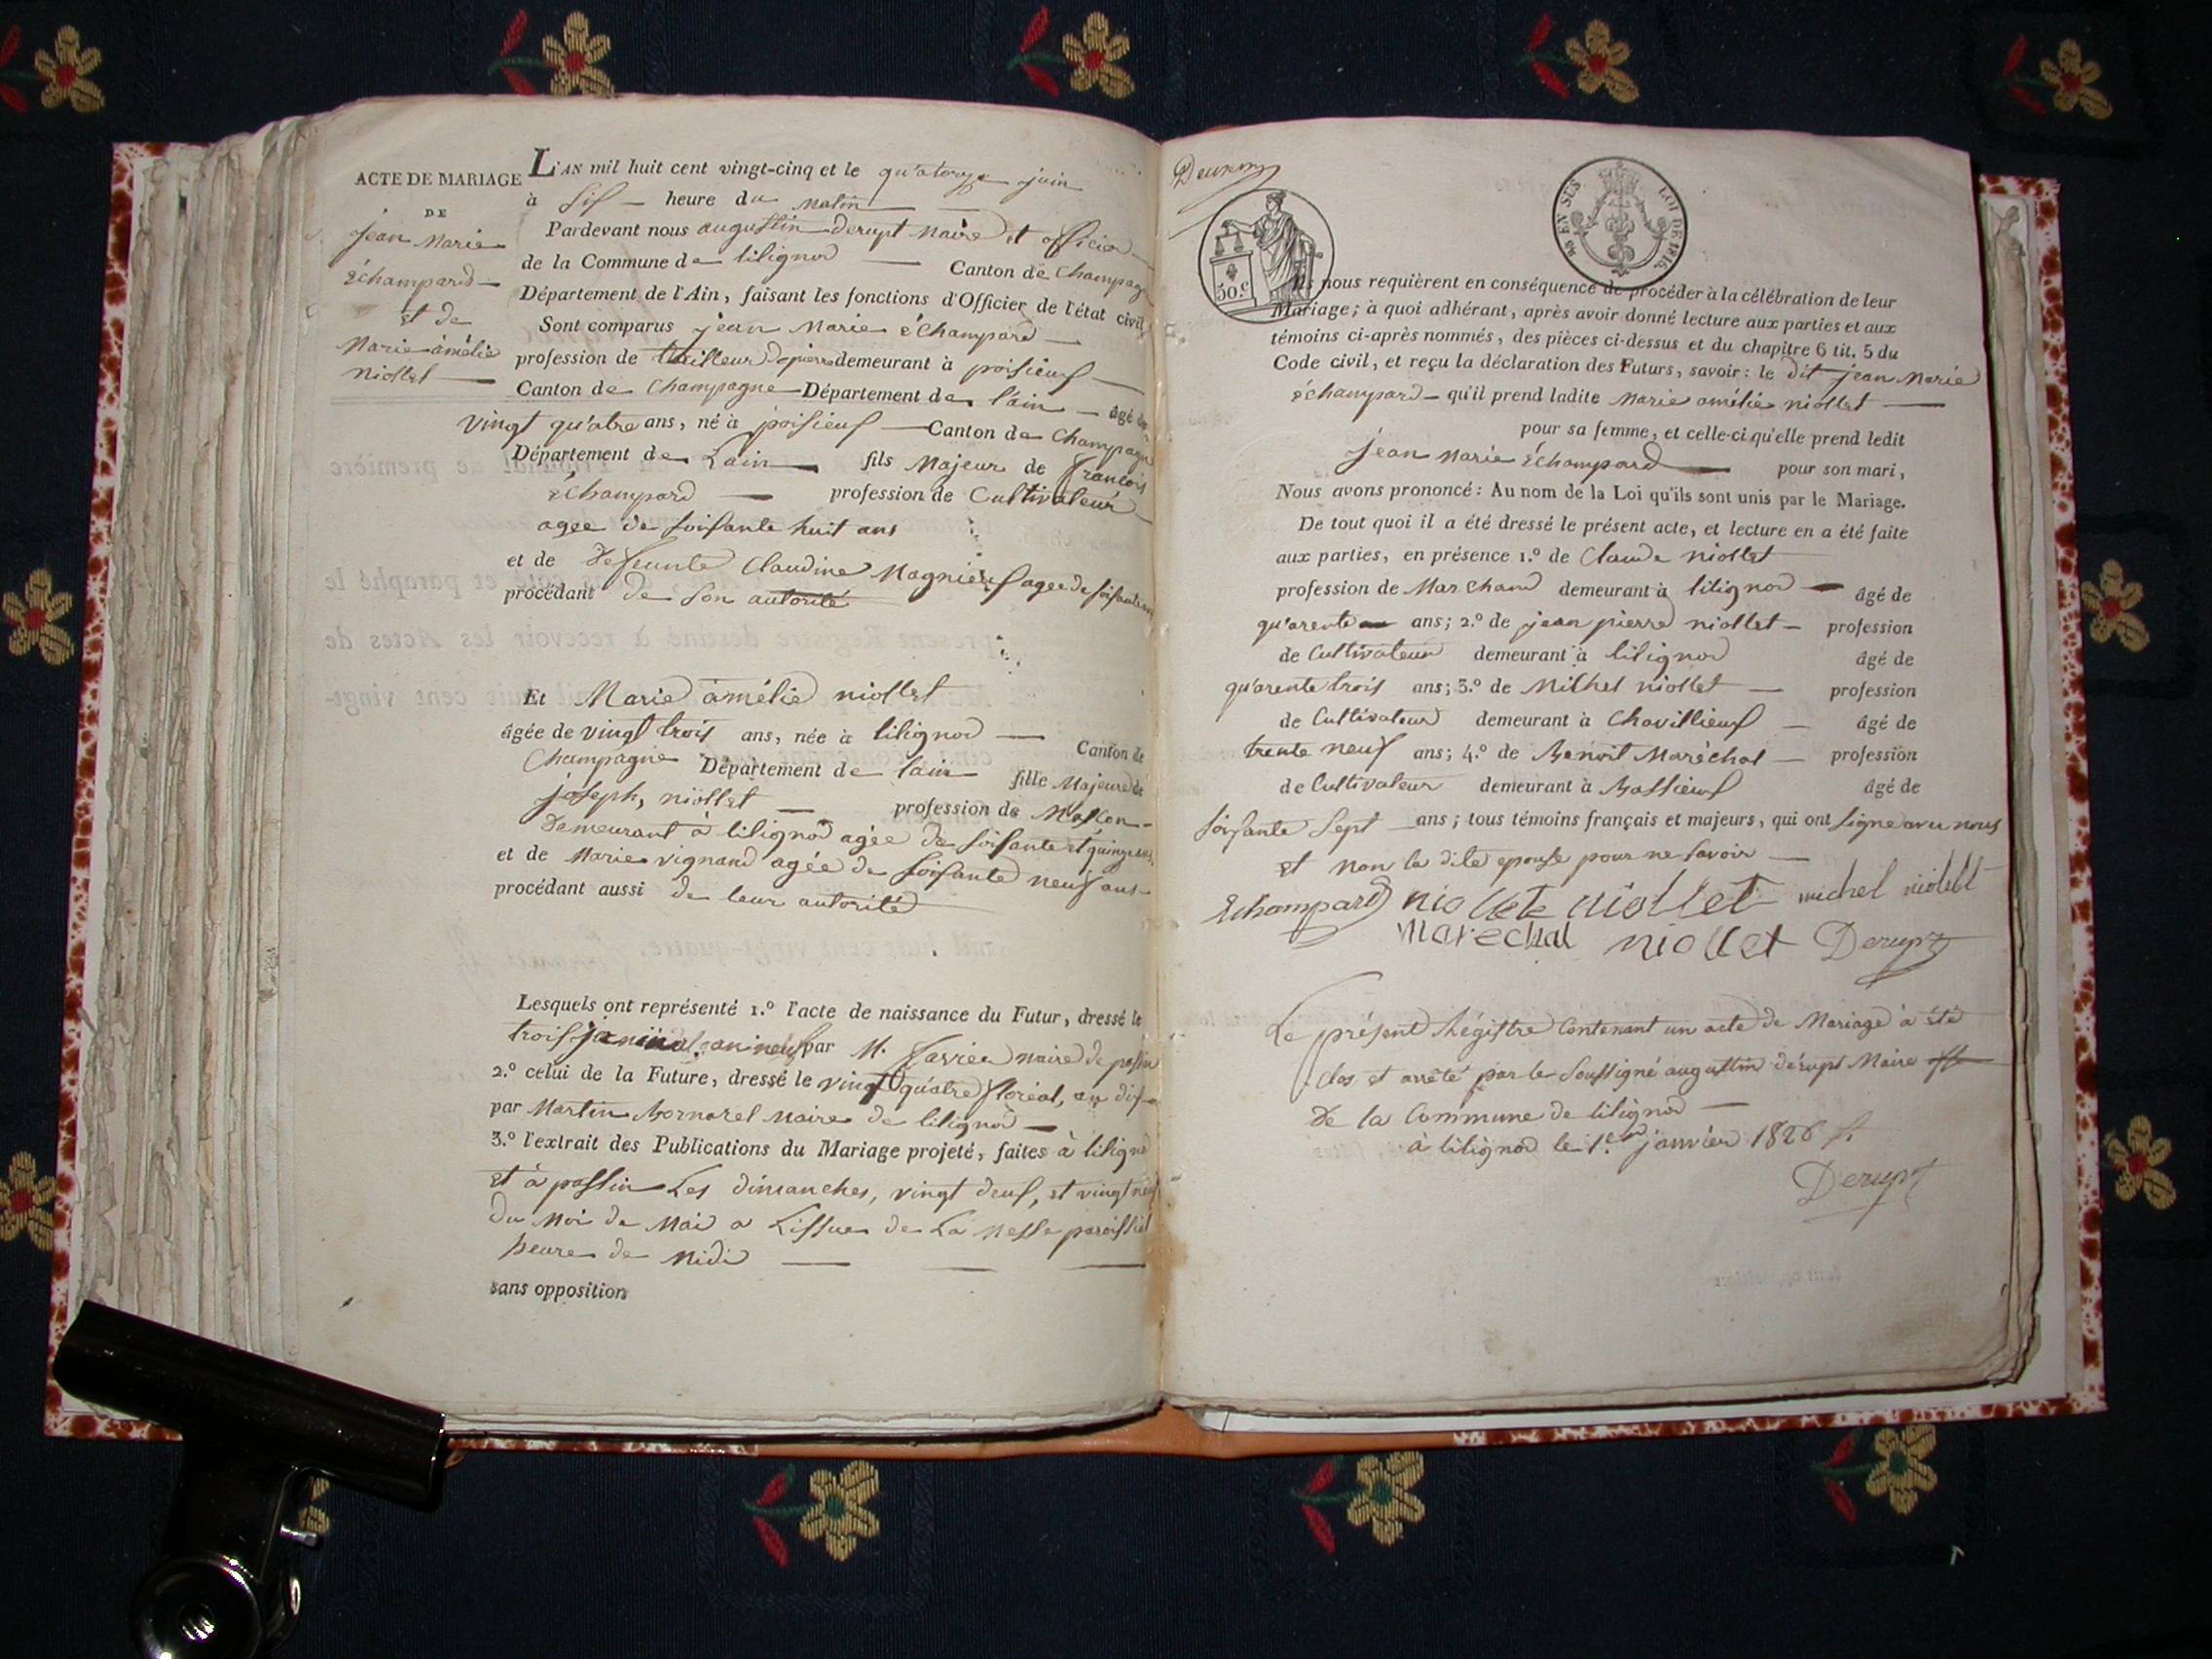 ACTE DE MARIAGE
DE
jean Marie
échampard
et de
Marie amélie
niollet
L'AN mil huit cent vingt-cinq et le quatorze juin
à six heure du matin
Pardevant nous augustin derupt maire et officier
de la Commune de lilignod Canton de Champag
Département de l'Ain, faisant les fonctions d'Officier de l'état civil
Sont comparus jean Marie échampard
profession de tailleur de pierre demeurant à poisieux
Canton de Champagne Département de l'ain âgé de
vingt quatre ans, né à poisieux Canton de Champagne
Département de Lain fils Majeur de francois
échampard profession de Cultivateur
agee de soixante huit ans
et de defeunte Claudine Magnieux agee de soixante
procédant de son autorité
Et Marie amélie niollet
âgée de vingt trois ans, née à lilignod Canton de
Champagne Département de lain fille Majeure de
joseph, niollet profession de Masson
demeurant à lilignod agée de soixante et quinze ans
et de Marie vignand agée de soixante neuf ans
procédant aussi de leur autorité
Lesquels ont représenté 1.º l'acte de naissance du Futur, dressé le
trois an neuf par M. maire de passin
2.º celui de la Future, dressé le vingt quatre floréal, an dix
par Martin Bornarel maire de lilignod
3.º l'extrait des Publications du Mariage projeté, faites à lilignod
et à passin Les dimanches, vingt deux, et vingt neuf
du Moi de Mai a Lissue de La Messe paroissial
heure de Midi
sans opposition
50.c
EN SUS LOI DE 1816
Ils nous requièrent en conséquence de procéder à la célébration de leur
Mariage; à quoi adhérant, après avoir donné lecture aux parties et aux
témoins ci-après nommés, des pièces ci-dessus et du chapitre 6 tit. 5 du
Code civil, et reçu la déclaration des Futurs, savoir: le dit jean Marie
échampard qu'il prend ladite Marie amélie niollet
pour sa femme, et celle-ci qu'elle prend ledit
jean Marie échampard pour son mari,
Nous avons prononcé: Au nom de la Loi qu'ils sont unis par le Mariage.
De tout quoi il a été dressé le présent acte, et lecture en a été faite
aux parties, en présence 1.º de Claude niollet
profession de Marchand demeurant à lilignod âgé de
quarente ans; 2.º de jean pierre niollet profession
de Cultivateur demeurant à lilignod âgé de
quarente trois ans; 3.º de Michel niollet profession
de Cultivateur demeurant à Chavillieux âgé de
trente neuf ans; 4.º de Benoit Maréchal profession
de Cultivateur demeurant à Bassieux âgé de
soixante sept ans; tous témoins français et majeurs, qui ont signe avec nous
et non la dite epouse pour ne savoir
Echampard niollet niollet michel niollet
Marechal niollet Derupt
Le présent Régistre Contenant un acte de Mariage à été
clos et arrêté par le soussigné augustin dérupt Maire
De la Commune de lilignod
à lilignod le 1.er janvier 1826
Derupt